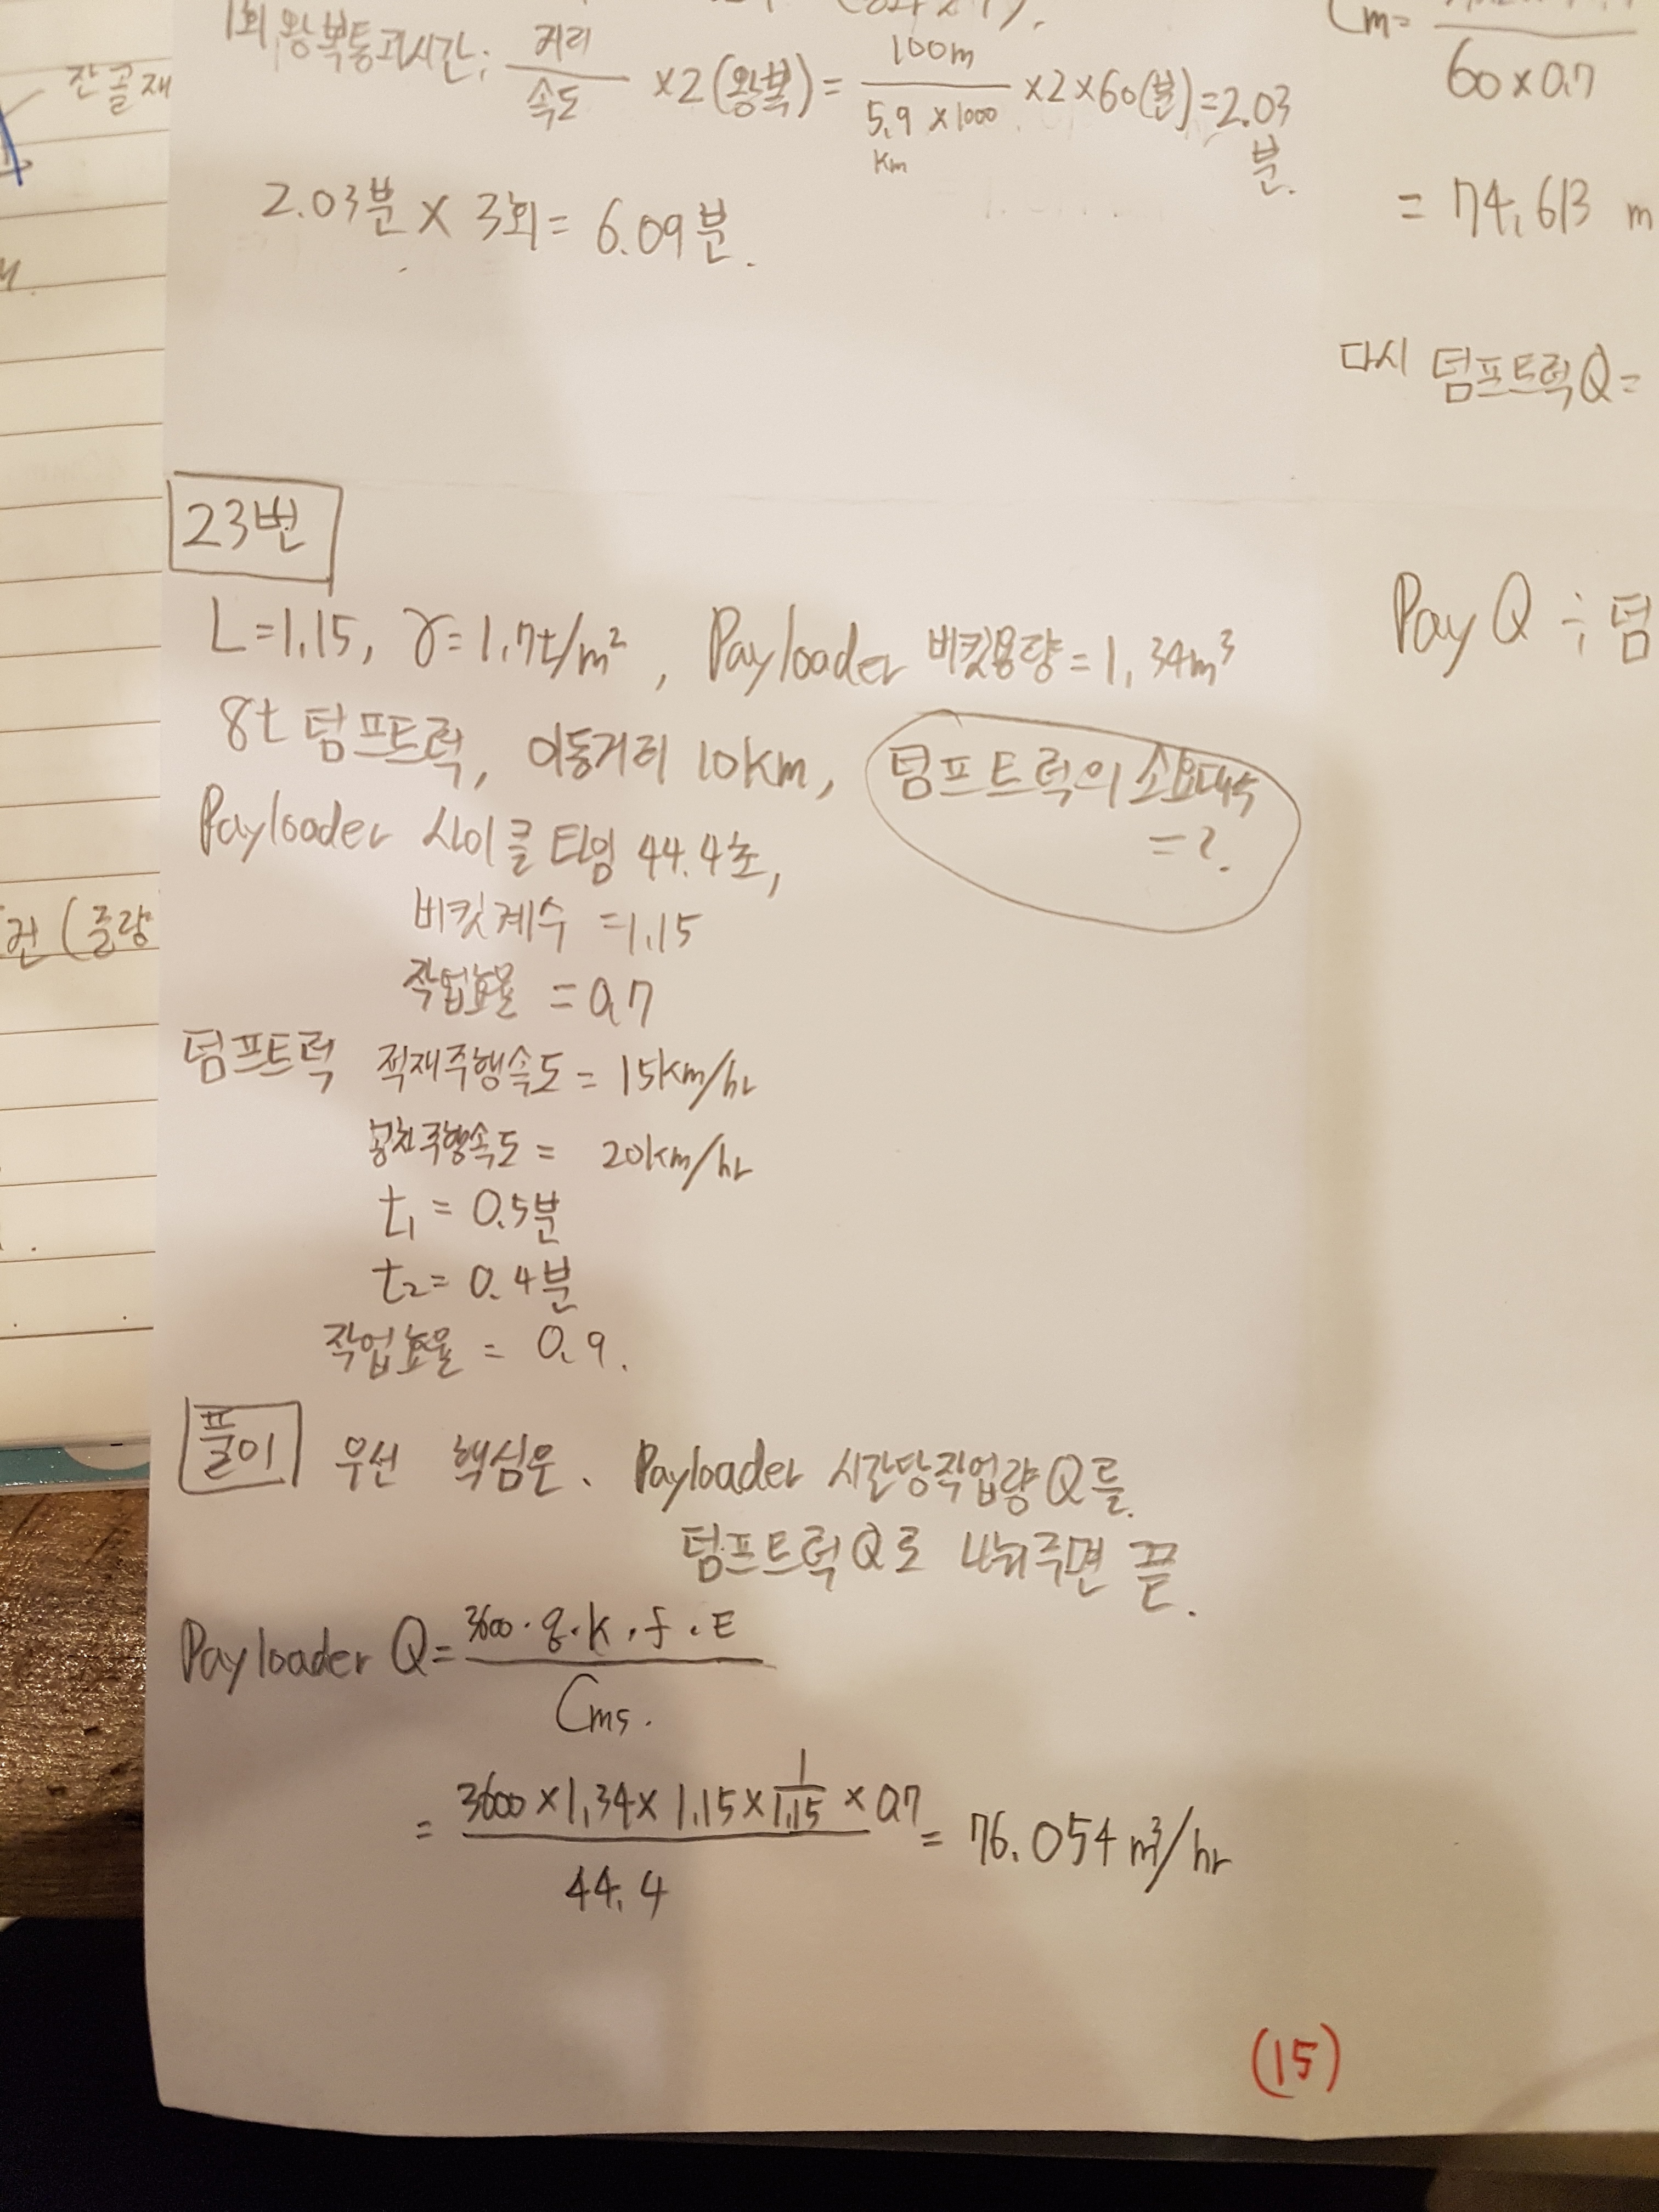 잔골재
1회 왕복통과시간; 거리/속도 ×2(왕복) = 100m/5.9×1000 ×2×60(분)=2.03분.
km
2.03분 × 3회 = 6.09분.
Cm=
60×0.7
= 74,613 m
다시 덤프트럭Q=
23번
L=1.15, γ=1.7t/m², Payloader 버킷용량=1.34m³
Pay Q ÷ 덤
8t 덤프트럭, 이동거리 10km, 덤프트럭의 소요대수=?.
Payloader 사이클 타임 44.4초,
버킷계수 =1.15
작업효율 =0.7
덤프트럭 적재주행속도= 15km/hr
공차주행속도= 20km/hr
t₁ = 0.5분
t₂= 0.4분
작업효율 = 0.9.
풀이 우선 핵심은. Payloader 시간당작업량Q를.
덤프트럭Q로 나눠주면 끝.
Payloader Q= 3600·q·k·f·E/Cms.
= 3600×1.34×1.15×1/1.15×0.7/44.4 = 76.054m³/hr
(15)